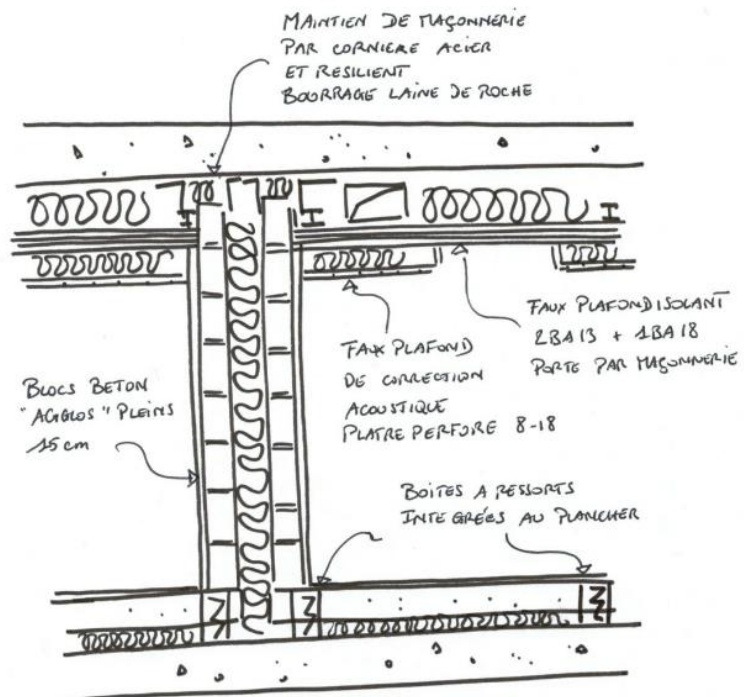 MAINTIEN DE MAÇONNERIE
PAR CORNIERE ACIER
ET RESILIENT
BOURRAGE LAINE DE ROCHE
FAUX PLAFOND ISOLANT
2BA13 + 1BA18
PORTE PAR MAÇONNERIE
FAUX PLAFOND
DE CORRECTION
ACOUSTIQUE
PLATRE PERFORE 8-18
BLOCS BETON
"AGGLOS" PLEINS
15cm
BOITES A RESSORTS
INTEGRÉES AU PLANCHER